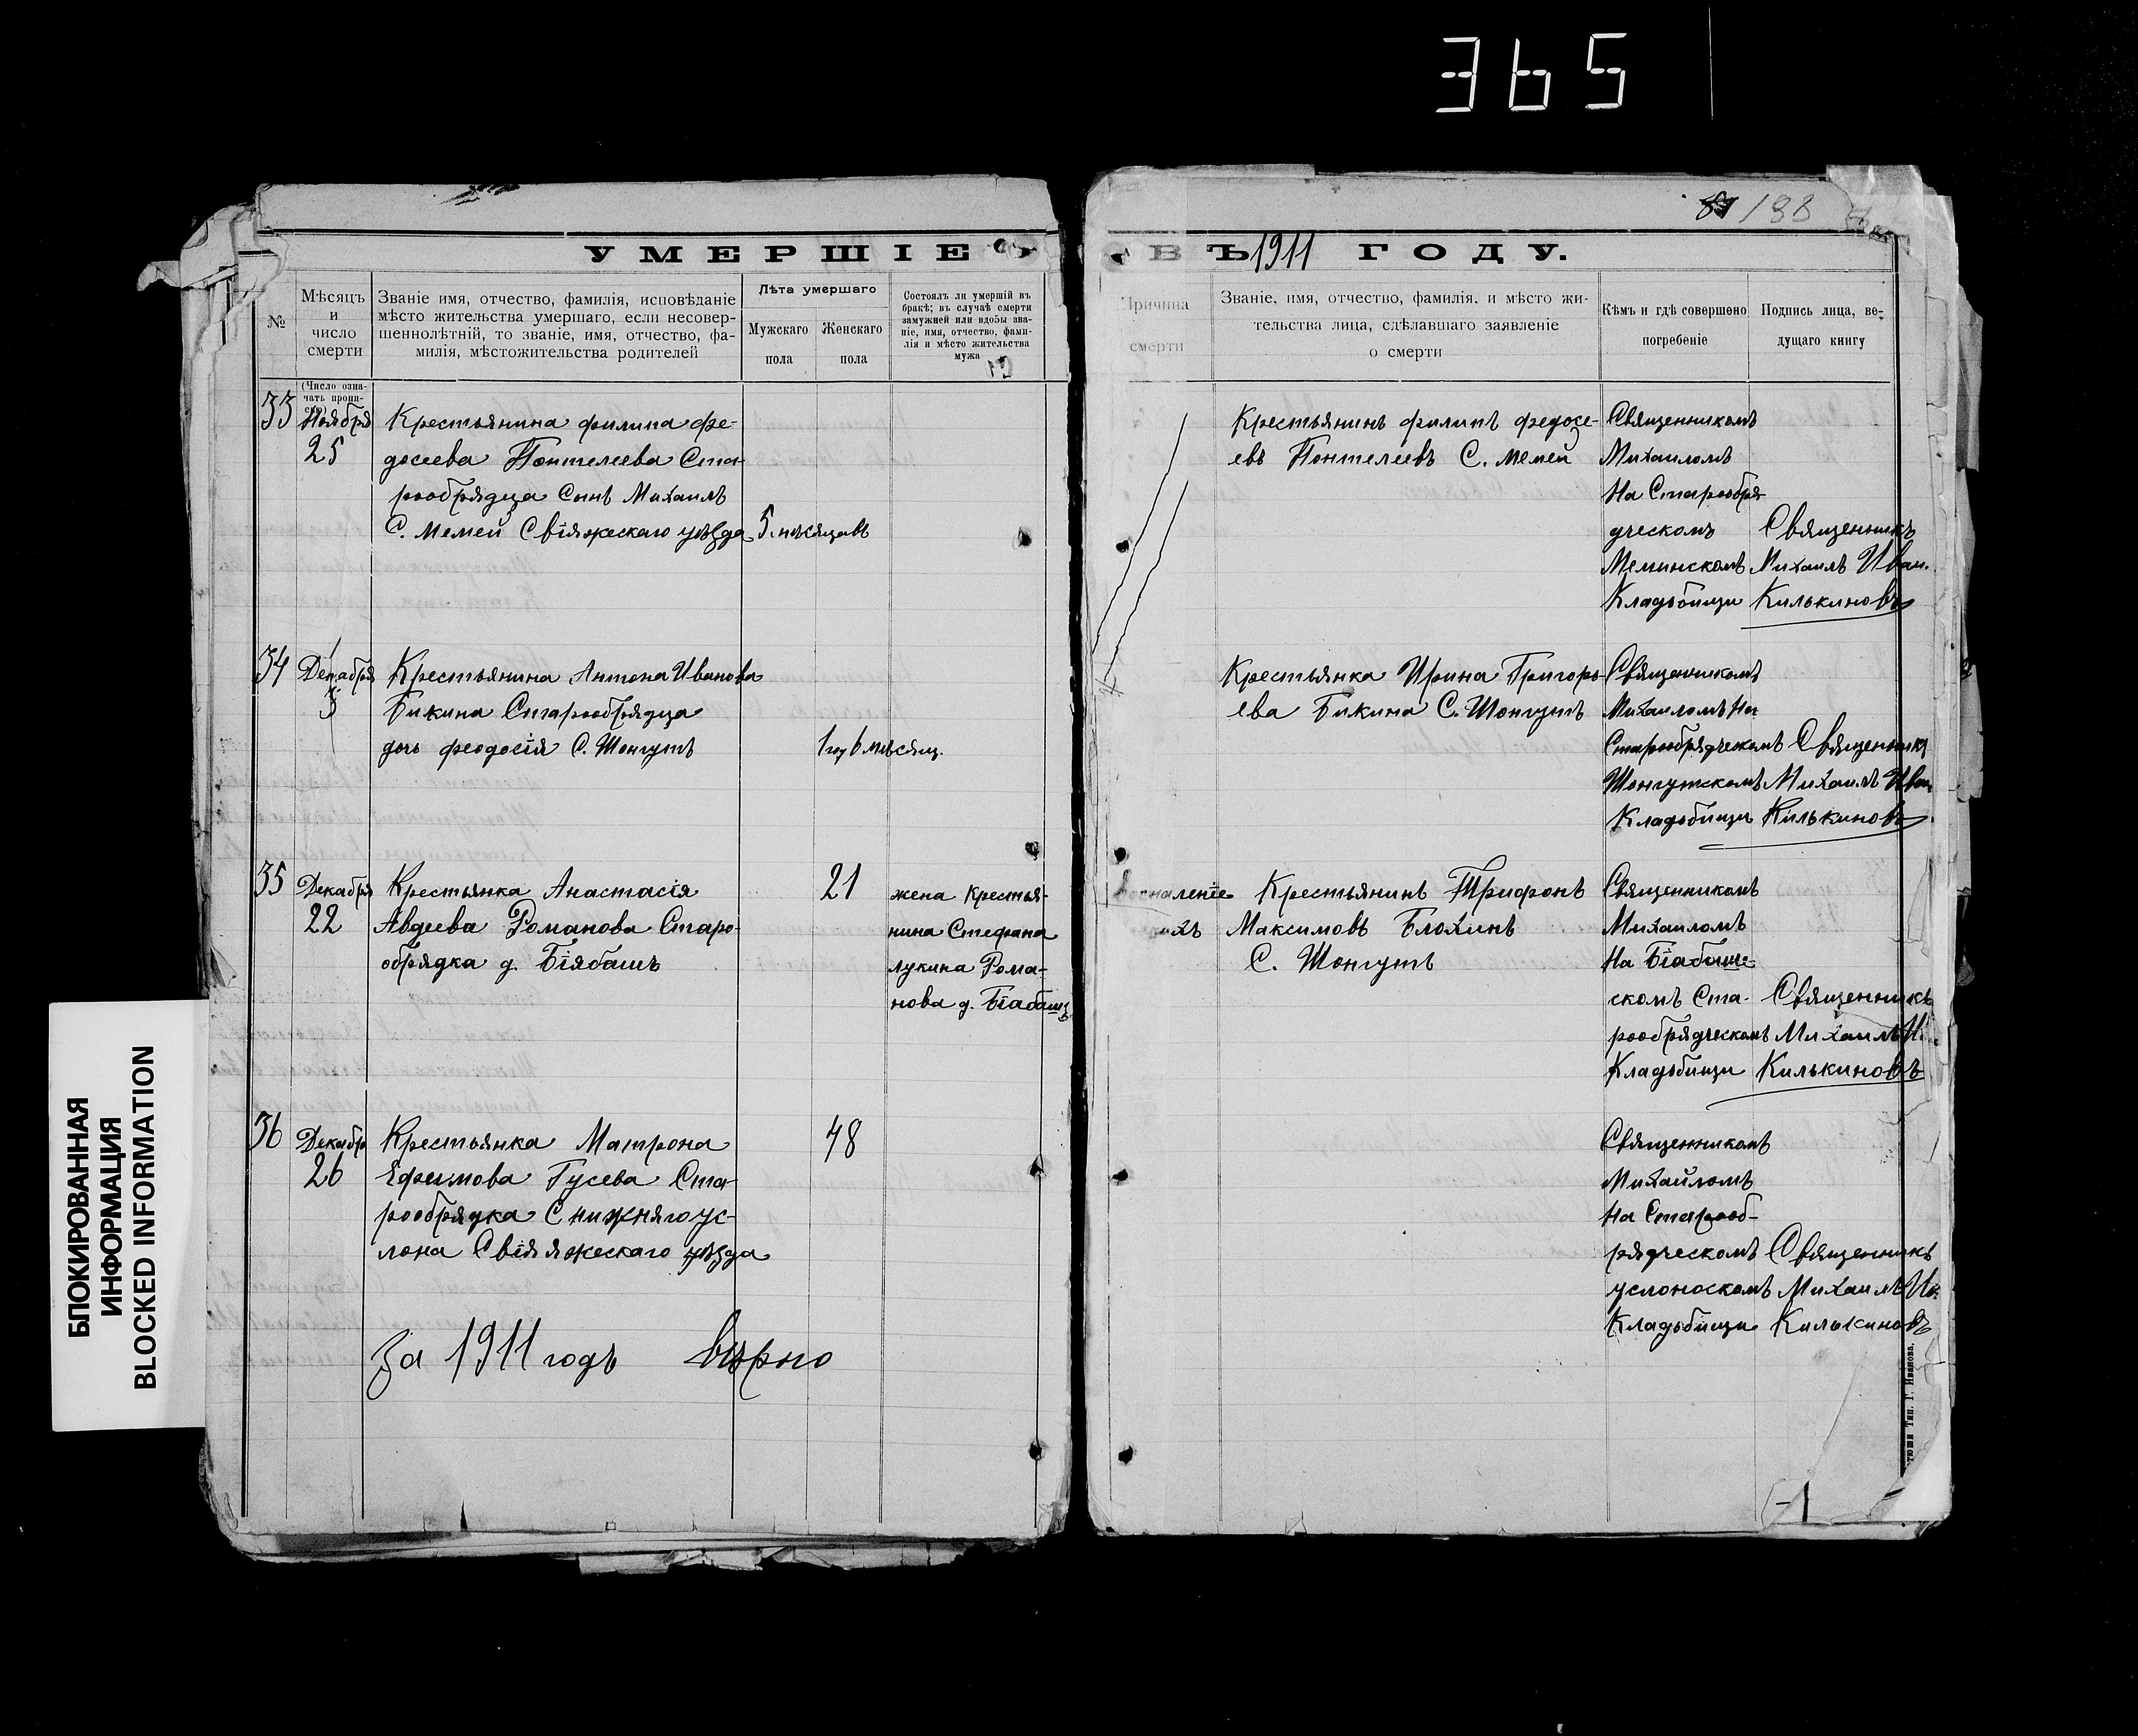 365
198
УМЕРШІЕ
ВЪ 1911 ГОДУ.
№
Мѣсяцъ
и
число
смерти
Званіе имя, отчество, фамилія, исповѣданіе
мѣсто жительства умершаго, если несовер-
шеннолѣтній, то званіе, имя, отчество, фа-
милія, мѣстожительства родителей
Лѣта умершаго
Мужскаго
пола
Женскаго
пола
Состоялъ ли умершій въ
бракѣ; въ случаѣ смерти
замужней или вдовы зва-
ніе, имя, отчество, фами-
лія и мѣсто жительства
мужа
Причина
смерти
Званіе, имя, отчество, фамилія, и мѣсто жи-
тельства лица, сдѣлавшаго заявленіе
о смерти
Кѣмъ и гдѣ совершено
погребеніе
Подпись лица, ве-
дущаго книгу
(Число озна-
чать пропи-
33
Ноября
25
Крестьянина филипа фе-
досеева Понтелеева Ста-
рообрядца Сынъ Михаилъ
С. Мемей Свіяжескаго уѣзда
5. мѣсяцавъ
Крестьянинъ филипъ федосе-
евъ Понтелеевъ С. Мемей
Священникомъ
Михаиломъ
На Старообря-
дческомъ
Меминскомъ
Кладьбищи
Священникъ
Михаилъ Иван.
Килькиновъ
34
Декабря
3
Крестьянина Антона Иванова
Бикина Старообрядца
дочь феодосія С. Шонгутъ
1 го 6 мѣсяц.
Крестьянка Ирина Григорь-
ева Бикина С. Шонгутъ
Священникомъ
Михаиломъ На
Старообрядческомъ
Шонгутскомъ
Кладьбищи
Священникъ
Михаилъ Иван
Килькиновъ
35
Декабря
22
Крестьянка Анастасія
Авдеева Романова Старо-
обрядка д. Біябашъ
21
жена Крестья-
нина Стефана
лукина Рома-
нова д. Біабашъ
Воспаленіе
Крестьянинъ Трифонъ
Максимовъ Блохинъ
С. Шонгутъ
Священникомъ
Михаиломъ
На Біабаше-
скомъ Ста-
рообрядческомъ
Кладьбищи
Священникъ
Михаилъ И.
Килькиновъ
36
Декабр
26
Крестьянка Матрона
Ефимова Гусева Ста-
рообрядка С нижняго ус-
лона Свіяжескаго уѣзда
48
Священникомъ
Михайломъ
На Старооб-
рядческомъ
услоноскомъ
Кладьбищи
Священникъ
Михаилъ Ив.
Килькиновъ
За 1911 годъ вѣрно
Тип. Г. Иванова.
БЛОКИРОВАННАЯ
ИНФОРМАЦИЯ
BLOCKED INFORMATION